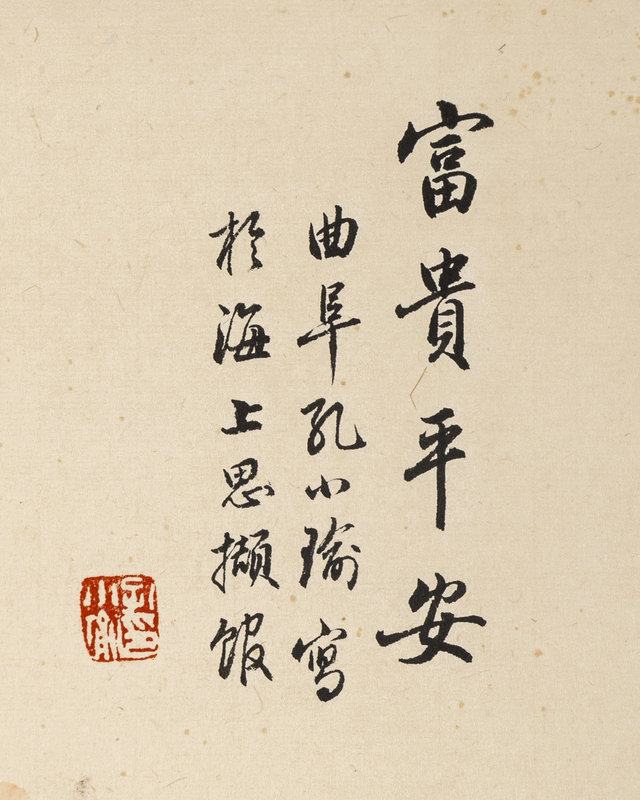 富貴平安
曲阜孔小瑜寫
於海上思擷館
孔印
小瑜